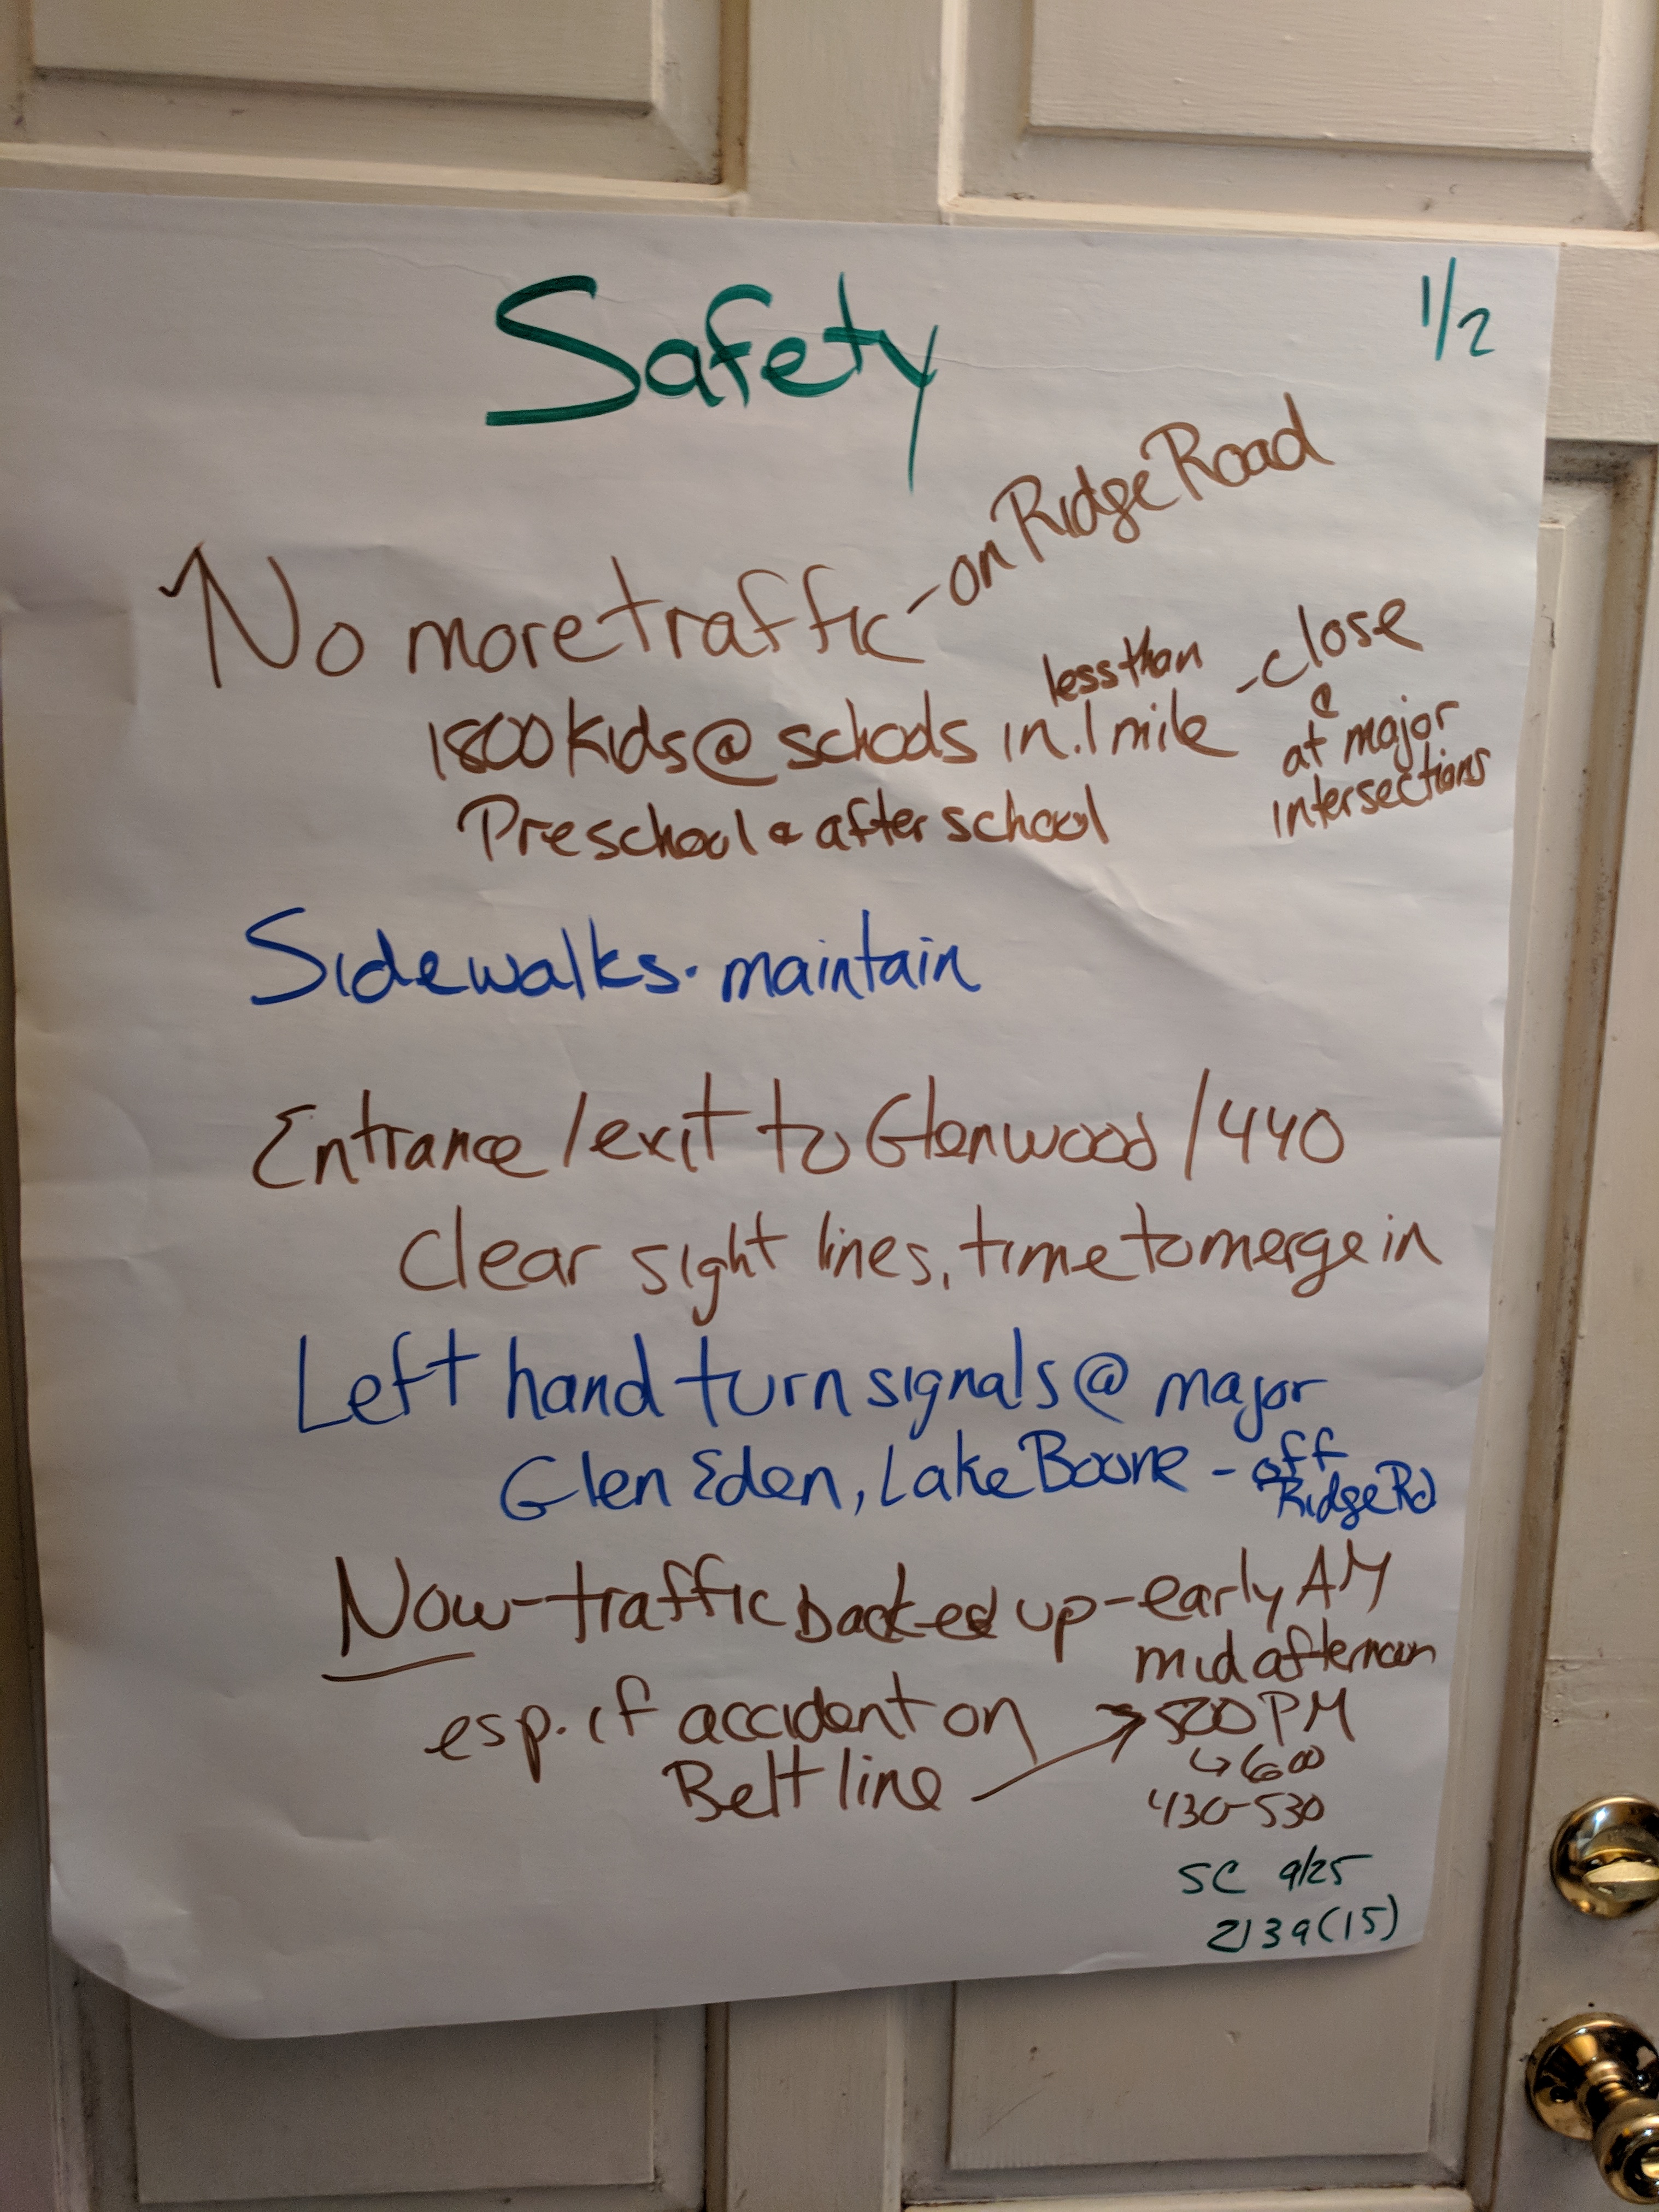 Safety
1/2
No more traffic - on Ridge Road
1800 kids @ schools in less than .1 mile - close
& at major
intersections
Preschool & after school
Sidewalks. maintain
Entrance / exit to Glenwood / 440
clear sight lines, time to merge in
Left hand turn signals @ major
Glen Eden, Lake Boone - off
Ridge Rd
Now - traffic backed up - early AM
mid afternoon
esp. if accident on
Beltline → 500 PM
↳ 600
430-530
SC 9/25
2139 (15)